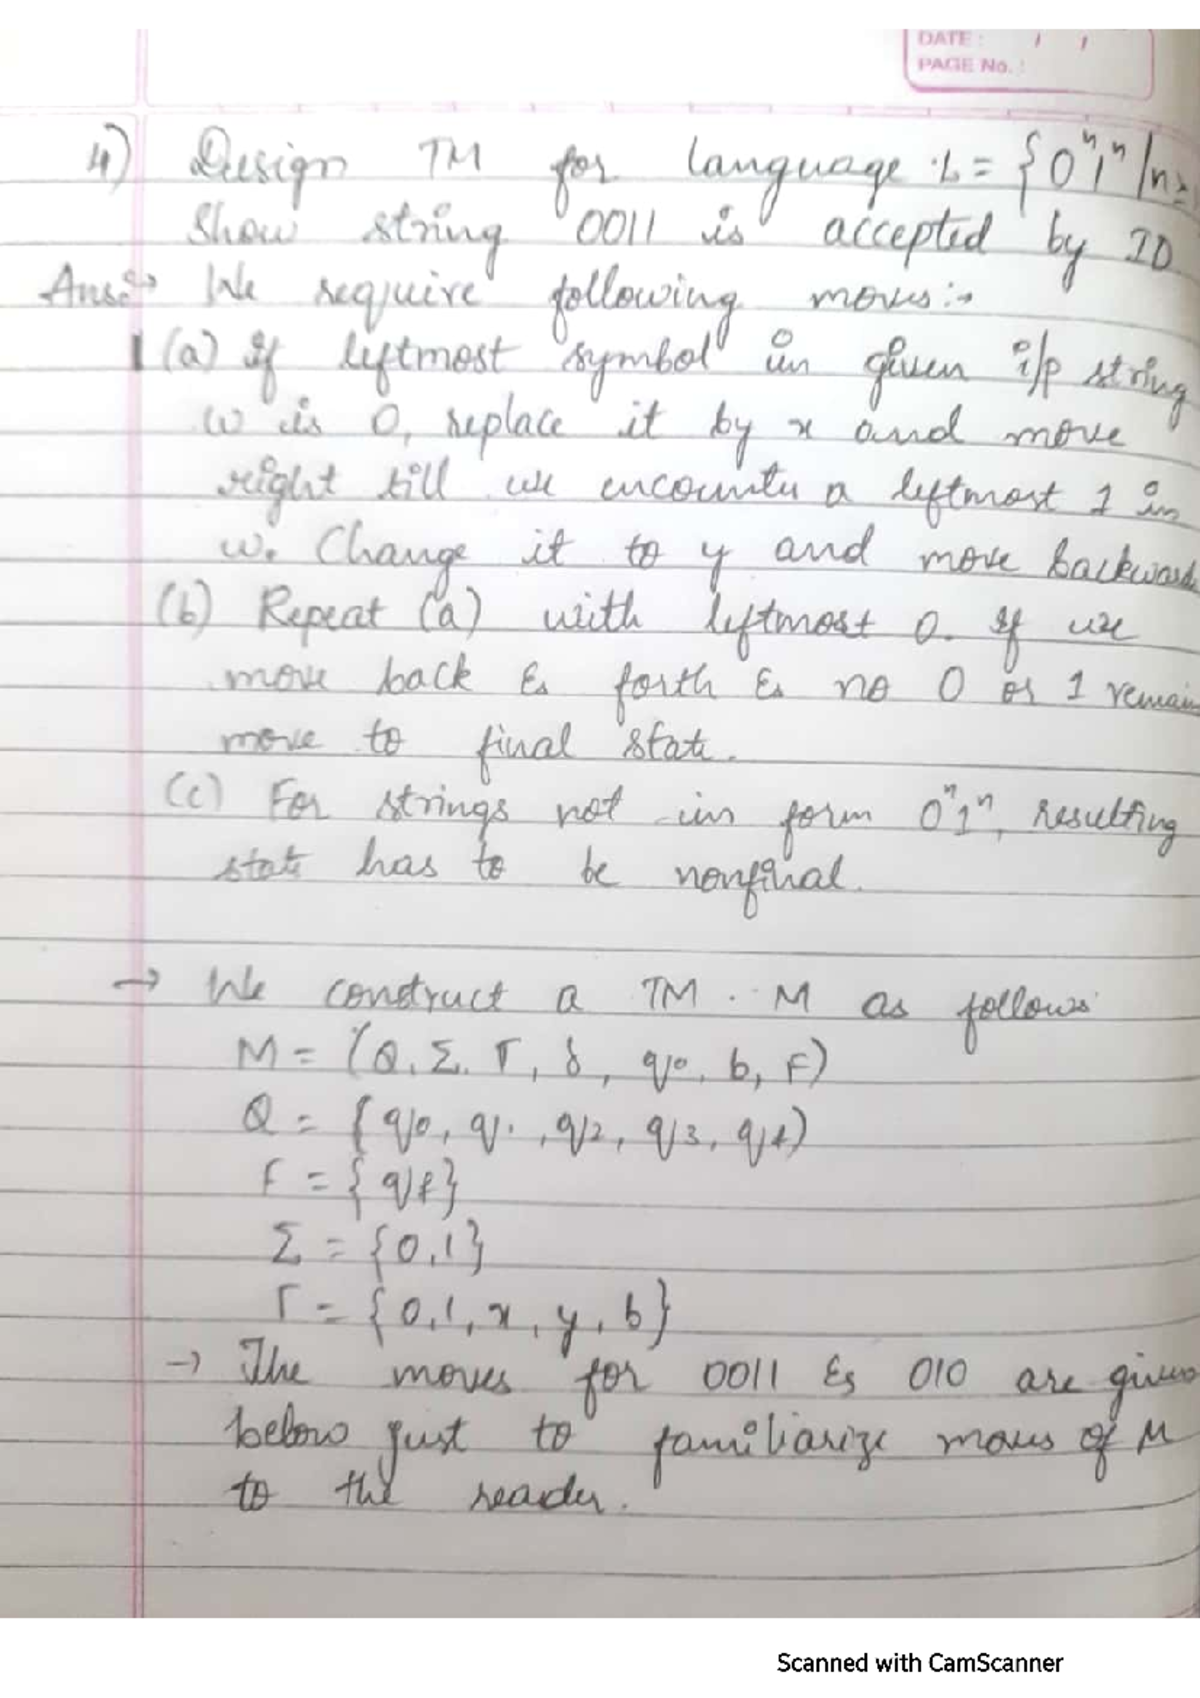 DATE : / /
PAGE No. :
4) Design TM for language L = {0ⁿ1ⁿ | n ≥
Show string 0011 is accepted by ID
Ans:→ We require following moves:→
(a) If leftmost symbol in given i/p string
w is 0, replace it by x and move
right till we encounter a leftmost 1 in
w. Change it to y and move backwards
(b) Repeat (a) with leftmost 0. If we
move back & forth & no 0 or 1 remain
move to final state.
(c) For strings not in form 0ⁿ1ⁿ, resulting
state has to be nonfinal.
→ We construct a TM M as follows
M = (Q, Σ, Γ, δ, q0, b, F)
Q = {q0, q1, q2, q3, qf)
F = {qf}
Σ = {0,1}
Γ = {0,1, x, y, b}
→ The moves for 0011 & 010 are given
below just to familiarize moves of M
to the reader.
Scanned with CamScanner